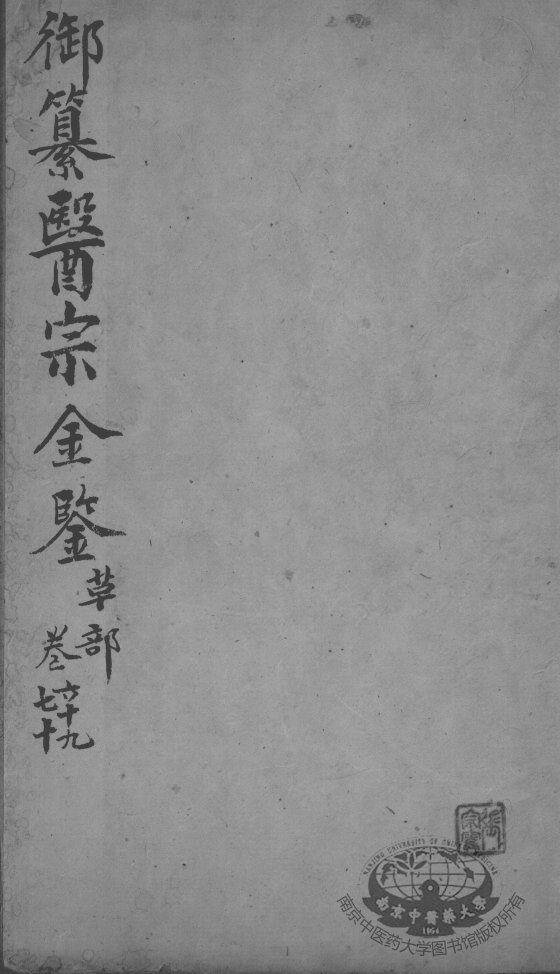 御纂醫宗金鑒
草部
卷
六十九
七十
NANJING UNIVERSITY OF CHINESE MEDICINE
南京中醫藥大學
1954
南京中医药大学图书馆版权所有